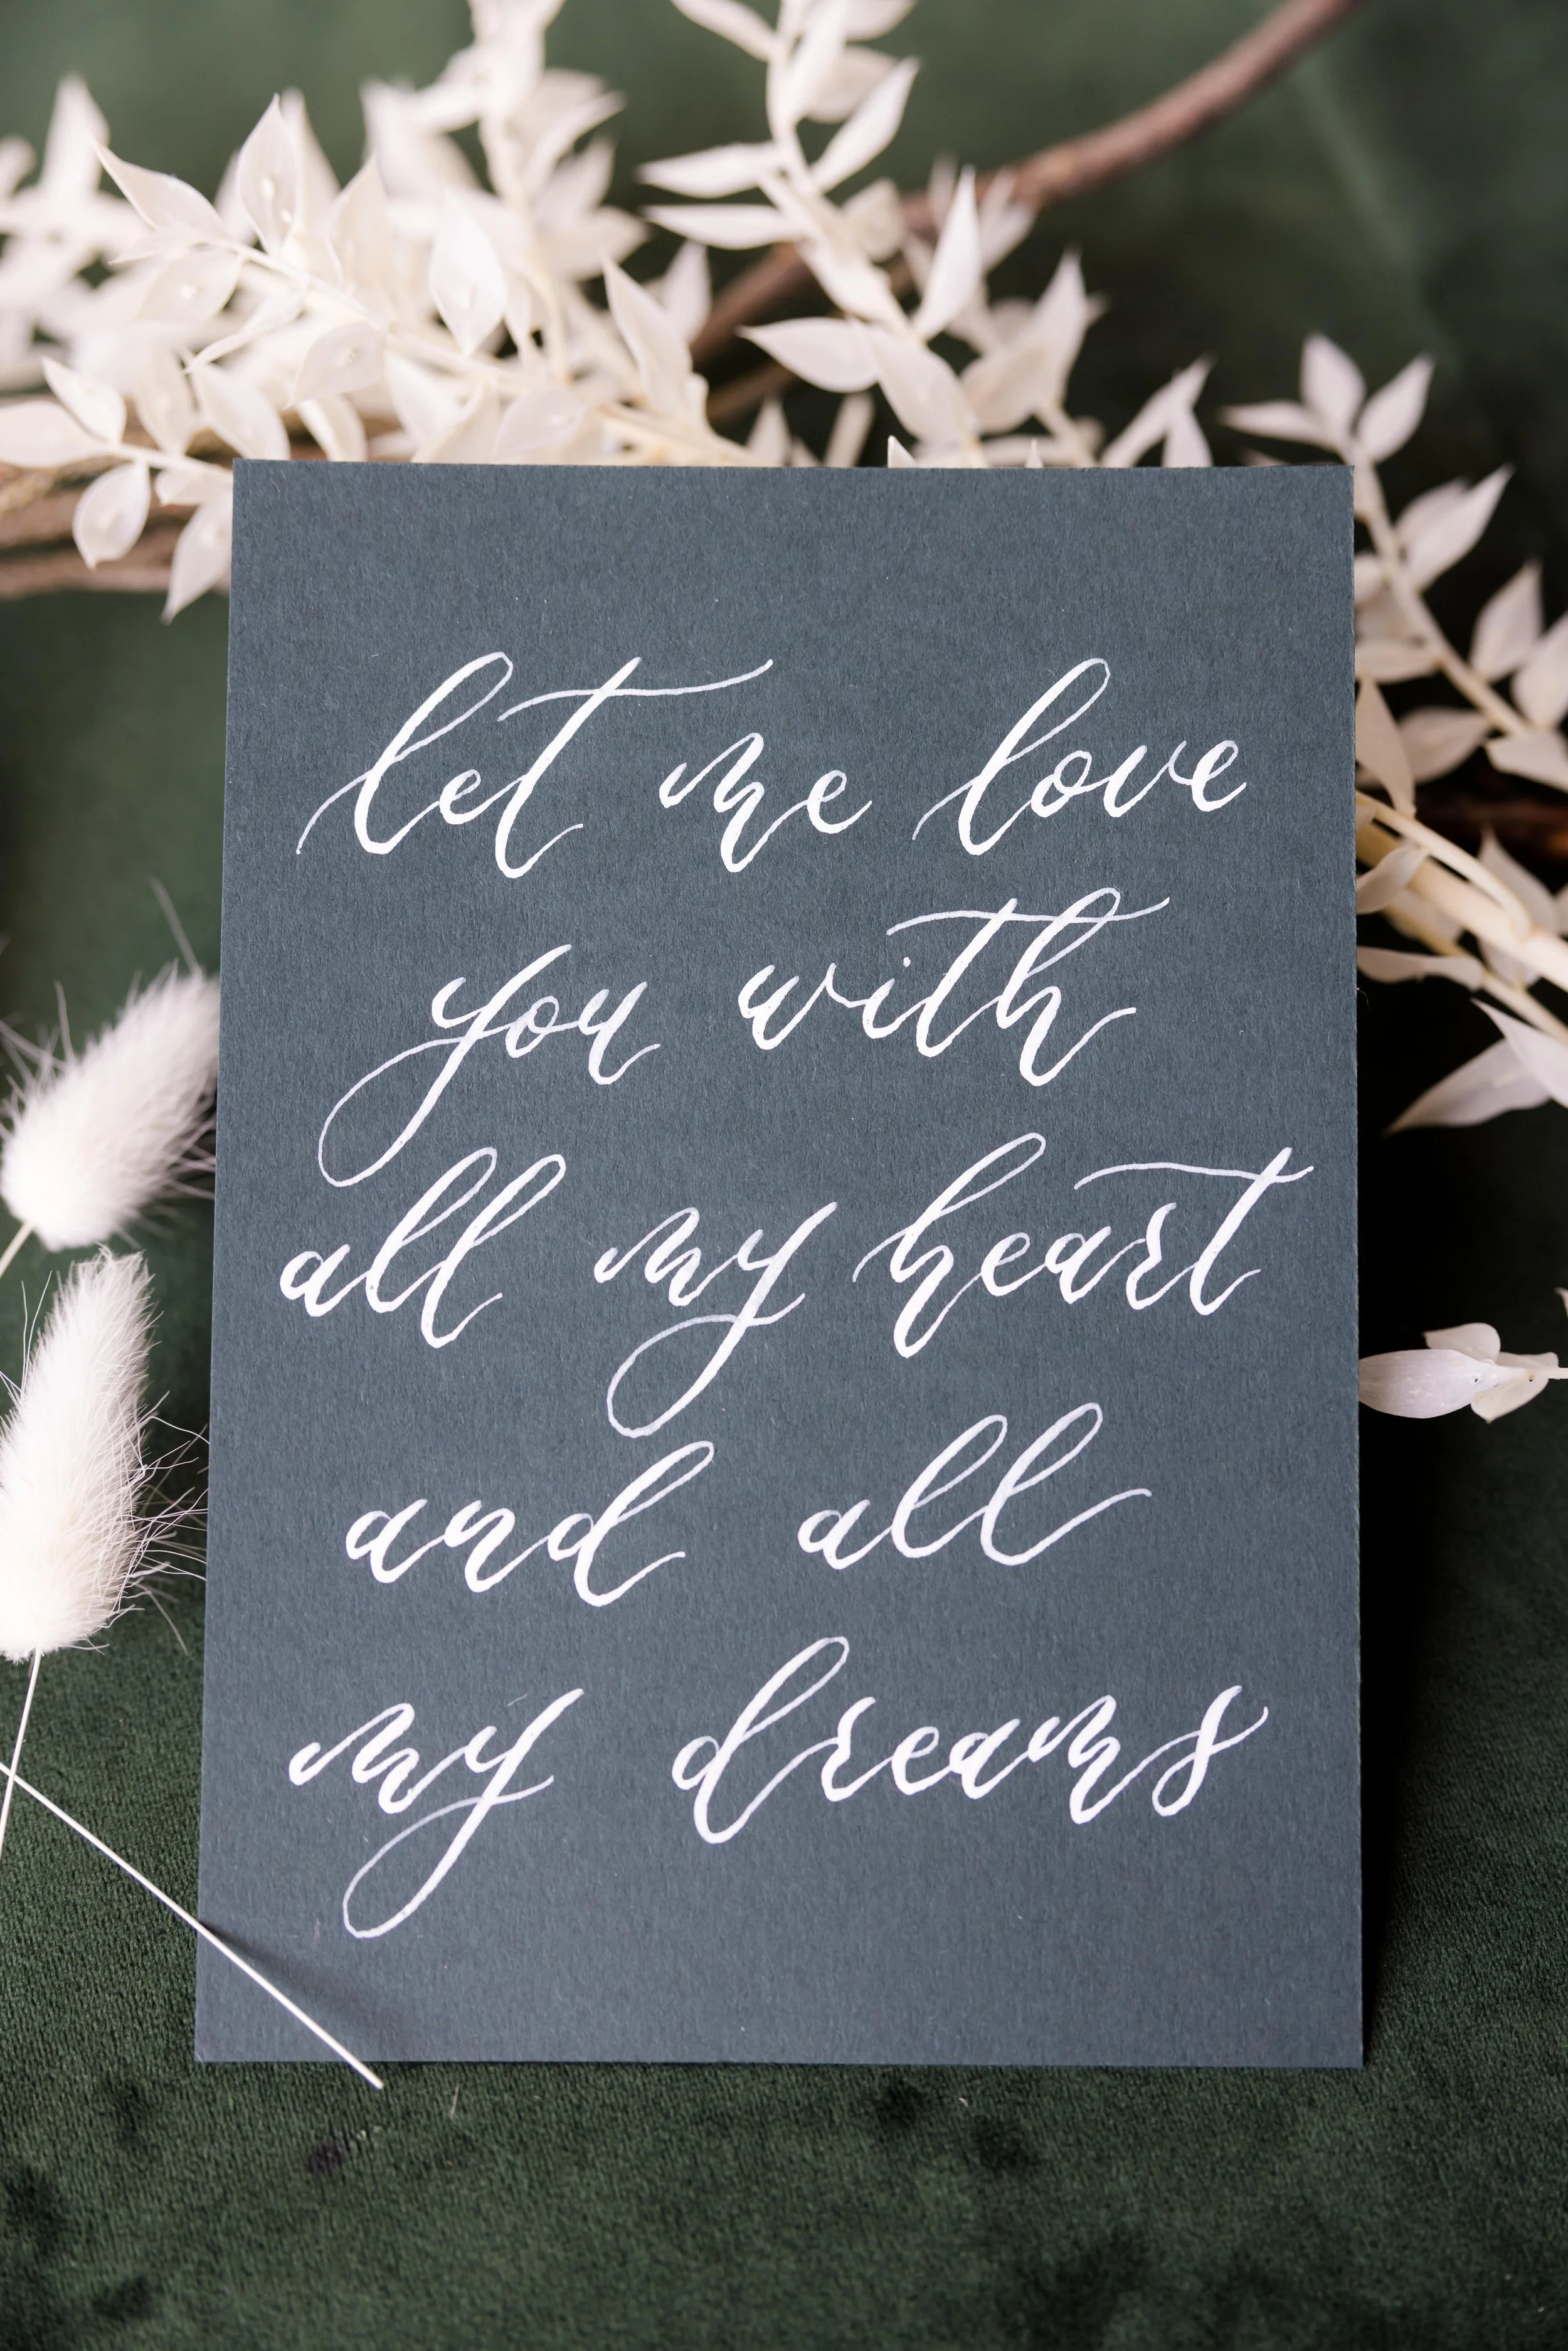 let me love
you with
all my heart
and all
my dreams